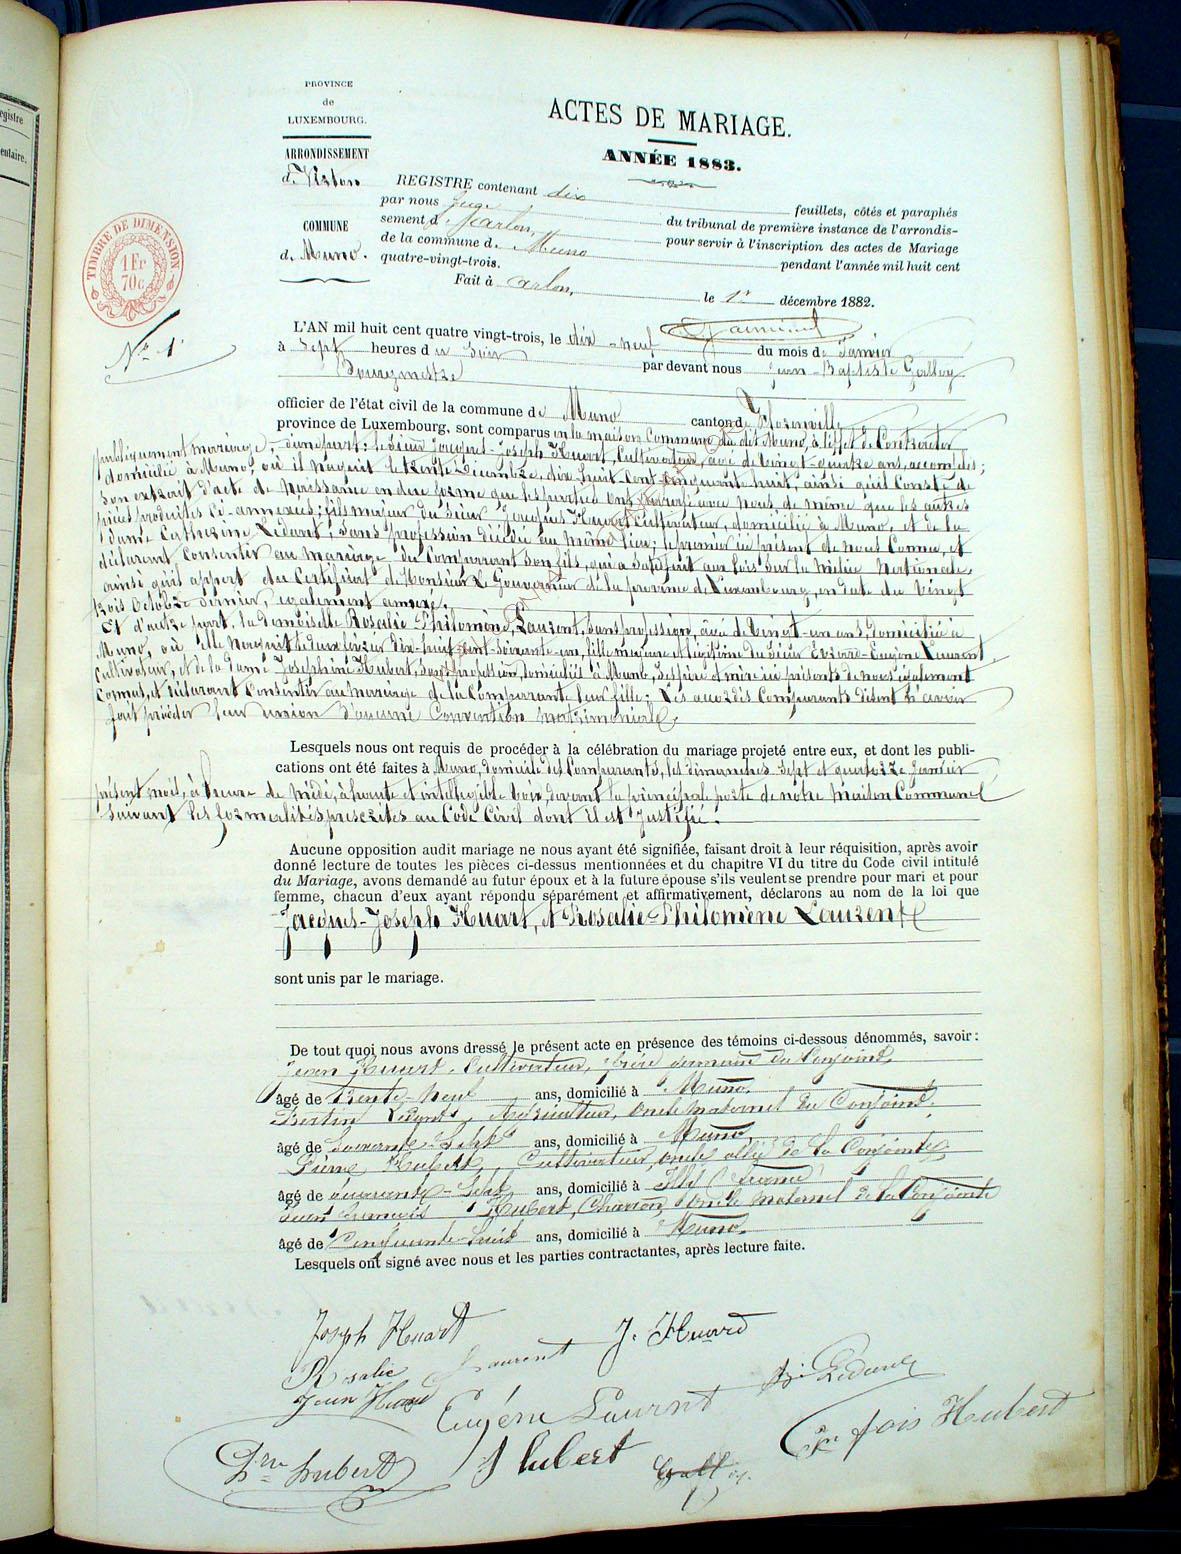 egistre
entaire.
PROVINCE
de
LUXEMBOURG.
ARRONDISSEMENT
de Virton
COMMUNE
de Muno.
TIMBRE DE DIMENSION
1 Fr
70c
No 1
ACTES DE MARIAGE.
ANNÉE 1883.
REGISTRE contenant dix feuillets, côtés et paraphés
par nous Juge du tribunal de première instance de l'arrondis-
sement d'Arlon, pour servir à l'inscription des actes de Mariage
de la commune de Muno pendant l'année mil huit cent
quatre-vingt-trois.
Fait à Arlon, le 1er décembre 1882.
L'AN mil huit cent quatre vingt-trois, le dix-neuf du mois de Janvier
à Sept heures du Soir par devant nous Jean-Baptiste Galloy
Bourgmestre
officier de l'état civil de la commune de Muno canton de Florenville
province de Luxembourg, sont comparus en la maison Commune du dit Muno, à l'effet de Contracter
publiquement mariage, d'une part: le Sieur Jacques-Joseph Huart, Cultivateur, âgé de Vingt-quatre ans, accomplis;
domicilié à Muno, où il naquit le trente Décembre, dix-huit-Cent-Cinquante huit, ainsi qu'il Conste de
Son extrait d'acte de Naissance en due forme que les parties ont avec Nous, de même que les autres
pièces produites ci-annexées; fils majeur du Sieur Jacques Huart Cultivateur, domicilié à Muno, et de la
Dame Catherine Ledant, Sans profession décédée au même lieu; le premier ici présent de nous Connu, et
déclarant Consentir au mariage du Comparant Son fils, qui a Satisfait aux lois Sur la Milice Nationale,
ainsi qu'il appert du Certificat de Monsieur Le Gouverneur de la province de Luxembourg, en date du Vingt
trois Octobre dernier, également annexé.
Et d'autre part, la Demoiselle Rosalie Philomène Laurent, Sans profession, âgée de Vingt-un ans, domiciliée à
Muno, où elle Naquit le Dix-huit-Cent-Soixante-un, fille majeure et légitime du Sieur Eugène Laurent,
Cultivateur, et de la Dame Joséphine Hubert, Sans profession, domiciliés à Muno, Ses père et mère ici présents de nous également
Connus, et déclarant Consentir au mariage de la Comparante leur fille; Les Comparants disent n'avoir
fait précéder leur union d'aucune Convention matrimoniale.
Lesquels nous ont requis de procéder à la célébration du mariage projeté entre eux, et dont les publi-
cations ont été faites à Muno, domicile des Comparants, les dimanches Sept et quatorze Janvier
présent mois, à l'heure de midi, à haute et intelligible Voix, devant la principale porte de notre Maison Commune
Suivant les formalités prescrites au Code Civil dont il est Justifié.
Aucune opposition audit mariage ne nous ayant été signifiée, faisant droit à leur réquisition, après avoir
donné lecture de toutes les pièces ci-dessus mentionnées et du chapitre VI du titre du Code civil intitulé
du Mariage, avons demandé au futur époux et à la future épouse s'ils veulent se prendre pour mari et pour
femme, chacun d'eux ayant répondu séparément et affirmativement, déclarons au nom de la loi que
Jacques-Joseph Huart, et Rosalie-Philomène Laurent
sont unis par le mariage.
De tout quoi nous avons dressé le présent acte en présence des témoins ci-dessous dénommés, savoir:
Jean Huart, Cultivateur, frère germain du Conjoint,
âgé de Trente-Neuf ans, domicilié à Muno,
Ledant, Agriculteur, Oncle maternel du Conjoint,
âgé de Soixante-Sept ans, domicilié à Muno,
Pierre Hubert, Cultivateur, oncle allié de la Conjointe
âgé de quarante-Sept ans, domicilié à Illy (France)
Jean François Hubert, Charron, Oncle maternel de la Conjointe
âgé de Cinquante-huit ans, domicilié à Muno.
Lesquels ont signé avec nous et les parties contractantes, après lecture faite.
Joseph Huart J. Huard
Rosalie Laurent
Jean Huard Eugène Laurent Ledant
Hubert J Hubert fois Hubert